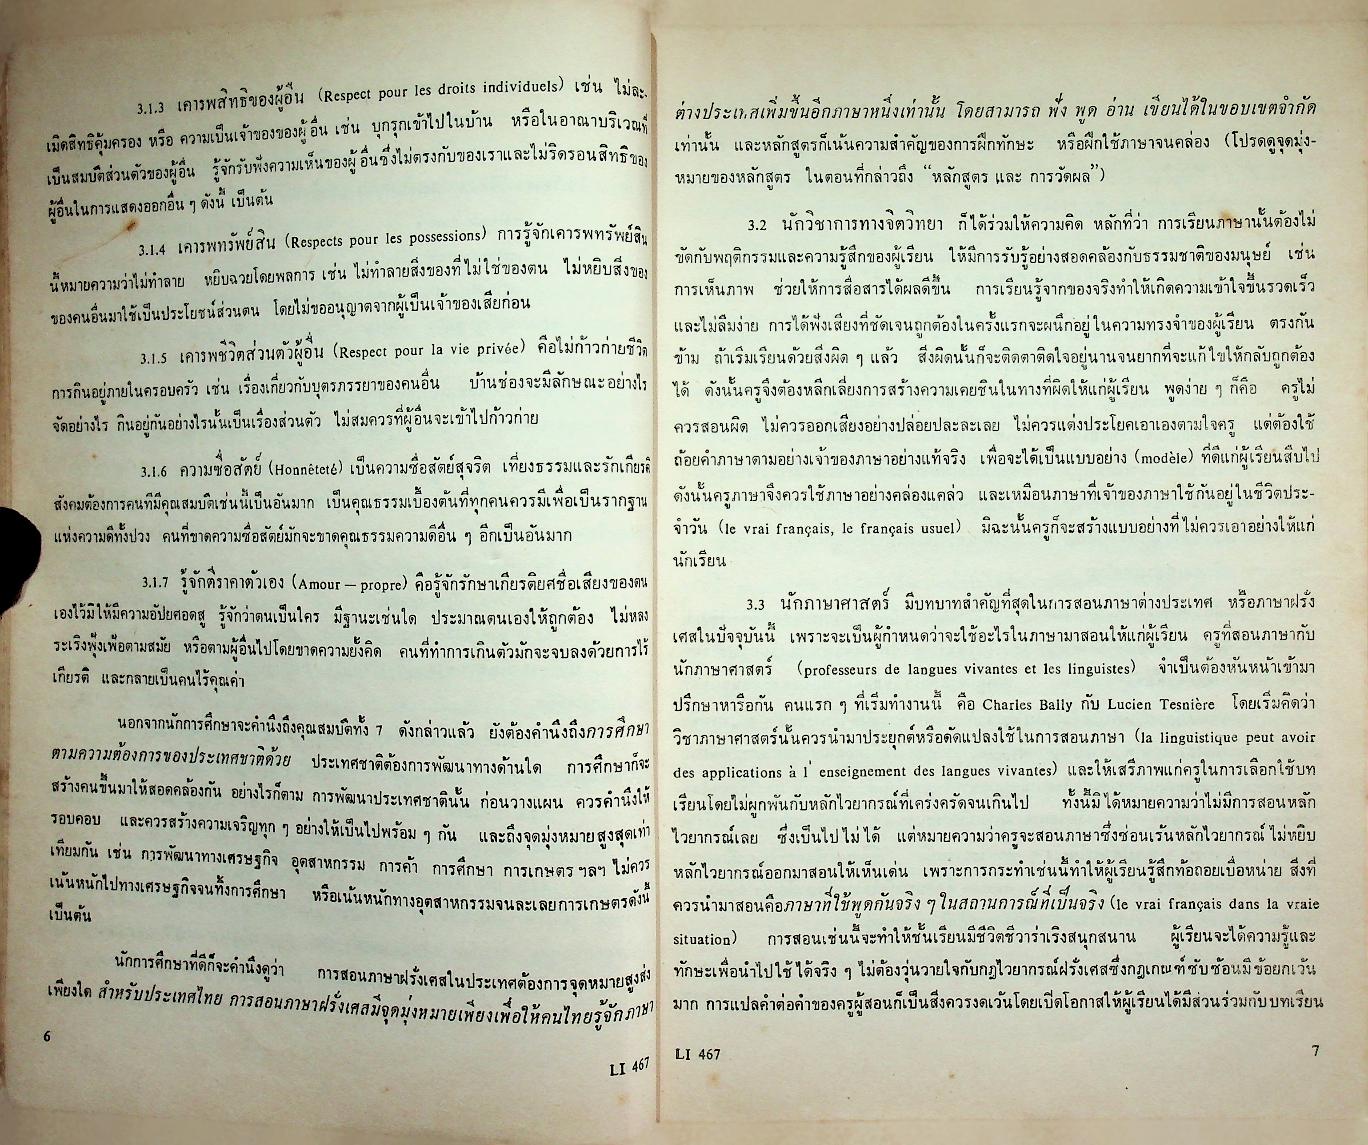 3.1.3 เคารพสิทธิของผู้อื่น (Respect pour les droits individuels) เช่น ไม่ละ-
เมิดสิทธิคุ้มครอง หรือ ความเป็นเจ้าของของผู้อื่น เช่น บุกรุกเข้าไปในบ้าน หรือในอาณาบริเวณที่
เป็นสมบัติส่วนตัวของผู้อื่น รู้จักรับฟังความเห็นของผู้อื่นซึ่งไม่ตรงกับของเราและไม่ริดรอนสิทธิของ
ผู้อื่นในการแสดงออกอื่น ๆ ดังนี้ เป็นต้น
3.1.4 เคารพทรัพย์สิน (Respects pour les possessions) การรู้จักเคารพทรัพย์สิน
นี้หมายความว่าไม่ทำลาย หยิบฉวยโดยพลการ เช่น ไม่ทำลายสิ่งของที่ไม่ใช่ของตน ไม่หยิบสิ่งของ
ของคนอื่นมาใช้เป็นประโยชน์ส่วนตน โดยไม่ขออนุญาตจากผู้เป็นเจ้าของเสียก่อน
3.1.5 เคารพชีวิตส่วนตัวผู้อื่น (Respect pour la vie privée) คือไม่ก้าวก่ายชีวิต
การกินอยู่ภายในครอบครัว เช่น เรื่องเกี่ยวกับบุตรภรรยาของคนอื่น บ้านช่องจะมีลักษณะอย่างไร
จัดอย่างไร กินอยู่กันอย่างไรนั้นเป็นเรื่องส่วนตัว ไม่สมควรที่ผู้อื่นจะเข้าไปก้าวก่าย
3.1.6 ความซื่อสัตย์ (Honnêteté) เป็นความซื่อสัตย์สุจริต เที่ยงธรรมและรักเกียรติ
สังคมต้องการคนที่มีคุณสมบัติเช่นนี้เป็นอันมาก เป็นคุณธรรมเบื้องต้นที่ทุกคนควรมีเพื่อเป็นรากฐาน
แห่งความดีทั้งปวง คนที่ขาดความซื่อสัตย์มักจะขาดคุณธรรมความดีอื่น ๆ อีกเป็นอันมาก
3.1.7 รู้จักตีราคาตัวเอง (Amour – propre) คือรู้จักรักษาเกียรติยศชื่อเสียงของตน
เองไว้มิให้มีความอัปยศอดสู รู้จักว่าตนเป็นใคร มีฐานะเช่นใด ประมาณตนเองให้ถูกต้อง ไม่หลง
ระเริงฟุ้งเฟ้อตามสมัย หรือตามผู้อื่นไปโดยขาดความยั้งคิด คนที่ทำการเกินตัวมักจะจบลงด้วยการไร้
เกียรติ และกลายเป็นคนไร้คุณค่า
นอกจากนักการศึกษาจะคำนึงถึงคุณสมบัติทั้ง 7 ดังกล่าวแล้ว ยังต้องคำนึงถึงการศึกษา
ตามความต้องการของประเทศชาติด้วย ประเทศชาติต้องการพัฒนาทางด้านใด การศึกษาก็จะ
สร้างคนขึ้นมาให้สอดคล้องกัน อย่างไรก็ตาม การพัฒนาประเทศชาตินั้น ก่อนวางแผน ควรคำนึงให้
รอบคอบ และควรสร้างความเจริญทุก ๆ อย่างให้เป็นไปพร้อม ๆ กัน และถึงจุดมุ่งหมายสูงสุดเท่า
เทียมกัน เช่น การพัฒนาทางเศรษฐกิจ อุตสาหกรรม การค้า การศึกษา การเกษตร ฯลฯ ไม่ควร
เน้นหนักไปทางเศรษฐกิจจนทิ้งการศึกษา หรือเน้นหนักทางอุตสาหกรรมจนละเลยการเกษตรดังนี้
เป็นต้น
นักการศึกษาที่ดีก็จะคำนึงดูว่า การสอนภาษาฝรั่งเศสในประเทศต้องการจุดหมายสูงส่ง
เพียงใด สำหรับประเทศไทย การสอนภาษาฝรั่งเศสมีจุดมุ่งหมายเพียงเพื่อให้คนไทยรู้จักภาษา
6
LI 467
ต่างประเทศเพิ่มขึ้นอีกภาษาหนึ่งเท่านั้น โดยสามารถ ฟัง พูด อ่าน เขียนได้ในขอบเขตจำกัด
เท่านั้น และหลักสูตรก็เน้นความสำคัญของการฝึกทักษะ หรือฝึกใช้ภาษาจนคล่อง (โปรดดูจุดมุ่ง-
หมายของหลักสูตร ในตอนที่กล่าวถึง “หลักสูตร และ การวัดผล”)
3.2 นักวิชาการทางจิตวิทยา ก็ได้ร่วมให้ความคิด หลักที่ว่า การเรียนภาษานั้นต้องไม่
ขัดกับพฤติกรรมและความรู้สึกของผู้เรียน ให้มีการรับรู้อย่างสอดคล้องกับธรรมชาติของมนุษย์ เช่น
การเห็นภาพ ช่วยให้การสื่อสารได้ผลดีขึ้น การเรียนรู้จากของจริงทำให้เกิดความเข้าใจขึ้นรวดเร็ว
และไม่ลืมง่าย การได้ฟังเสียงที่ชัดเจนถูกต้องในครั้งแรกจะผนึกอยู่ในความทรงจำของผู้เรียน ตรงกัน
ข้าม ถ้าเริ่มเรียนด้วยสิ่งผิด ๆ แล้ว สิ่งผิดนั้นก็จะติดตาติดใจอยู่นานจนยากที่จะแก้ไขให้กลับถูกต้อง
ได้ ดังนั้นครูจึงต้องหลีกเลี่ยงการสร้างความเคยชินในทางที่ผิดให้แก่ผู้เรียน พูดง่าย ๆ ก็คือ ครูไม่
ควรสอนผิด ไม่ควรออกเสียงอย่างปล่อยปละละเลย ไม่ควรแต่งประโยคเอาเองตามใจครู แต่ต้องใช้
ถ้อยคำภาษาตามอย่างเจ้าของภาษาอย่างแท้จริง เพื่อจะได้เป็นแบบอย่าง (modèle) ที่ดีแก่ผู้เรียนสืบไป
ดังนั้นครูภาษาจึงควรใช้ภาษาอย่างคล่องแคล่ว และเหมือนภาษาที่เจ้าของภาษาใช้กันอยู่ในชีวิตประ-
จำวัน (le vrai français, le français usuel) มิฉะนั้นครูก็จะสร้างแบบอย่างที่ไม่ควรเอาอย่างให้แก่
นักเรียน
3.3 นักภาษาศาสตร์ มีบทบาทสำคัญที่สุดในการสอนภาษาต่างประเทศ หรือภาษาฝรั่ง
เศสในปัจจุบันนี้ เพราะจะเป็นผู้กำหนดว่าจะใช้อะไรในภาษามาสอนให้แก่ผู้เรียน ครูที่สอนภาษากับ
นักภาษาศาสตร์ (professeurs de langues vivantes et les linguistes) จำเป็นต้องหันหน้าเข้ามา
ปรึกษาหารือกัน คนแรก ๆ ที่เริ่มทำงานนี้ คือ Charles Bally กับ Lucien Tesnière โดยเริ่มคิดว่า
วิชาภาษาศาสตร์นั้นควรนำมาประยุกต์หรือดัดแปลงใช้ในการสอนภาษา (la linguistique peut avoir
des applications à l' enseignement des langues vivantes) และให้เสรีภาพแก่ครูในการเลือกใช้บท
เรียนโดยไม่ผูกพันกับหลักไวยากรณ์ที่เคร่งครัดจนเกินไป ทั้งนี้มิได้หมายความว่าไม่มีการสอนหลัก
ไวยากรณ์เลย ซึ่งเป็นไปไม่ได้ แต่หมายความว่าครูจะสอนภาษาซึ่งซ่อนเร้นหลักไวยากรณ์ ไม่หยิบ
หลักไวยากรณ์ออกมาสอนให้เห็นเด่น เพราะการกระทำเช่นนี้ทำให้ผู้เรียนรู้สึกท้อถอยเบื่อหน่าย สิ่งที่
ควรนำมาสอนคือภาษาที่ใช้พูดกันจริง ๆ ในสถานการณ์ที่เป็นจริง (le vrai français dans la vraie
situation) การสอนเช่นนี้จะทำให้ชั้นเรียนมีชีวิตชีวาร่าเริงสนุกสนาน ผู้เรียนจะได้ความรู้และ
ทักษะเพื่อนำไปใช้ได้จริง ๆ ไม่ต้องวุ่นวายใจกับกฎไวยากรณ์ฝรั่งเศสซึ่งกฎเกณฑ์ซับซ้อนมีข้อยกเว้น
มาก การแปลคำต่อคำของครูผู้สอนก็เป็นสิ่งควรงดเว้นโดยเปิดโอกาสให้ผู้เรียนได้มีส่วนร่วมกับบทเรียน
LI 467
7